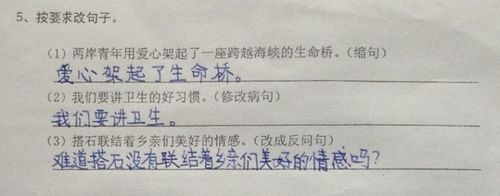 5、按要求改句子。
(1)两岸青年用爱心架起了一座跨越海峡的生命桥。(缩句)
爱心架起了生命桥。
(2)我们要讲卫生的好习惯。(修改病句)
我们要讲卫生。
(3)搭石联结着乡亲们美好的情感。(改成反问句)
难道搭石没有联结着乡亲们美好的情感吗?